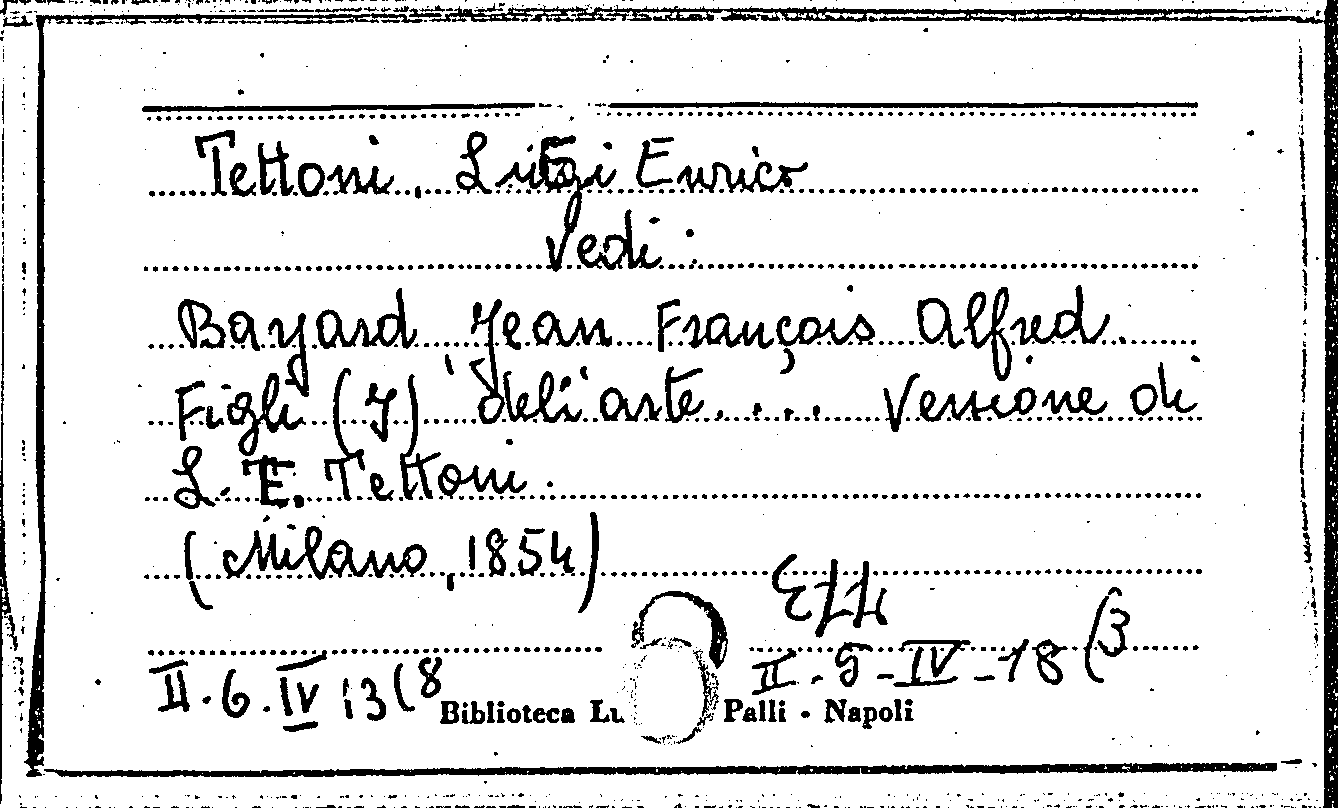 Tettoni, Luigi Enrico
Vedi:
Bayard Jean François Alfred.
Figli (I) dell'arte.... Versione di
L. E. Tettoni.
(Milano, 1854)
II. 6. IV 13(8
II. 5 - IV - 18(3
Biblioteca Lu Palli - Napoli